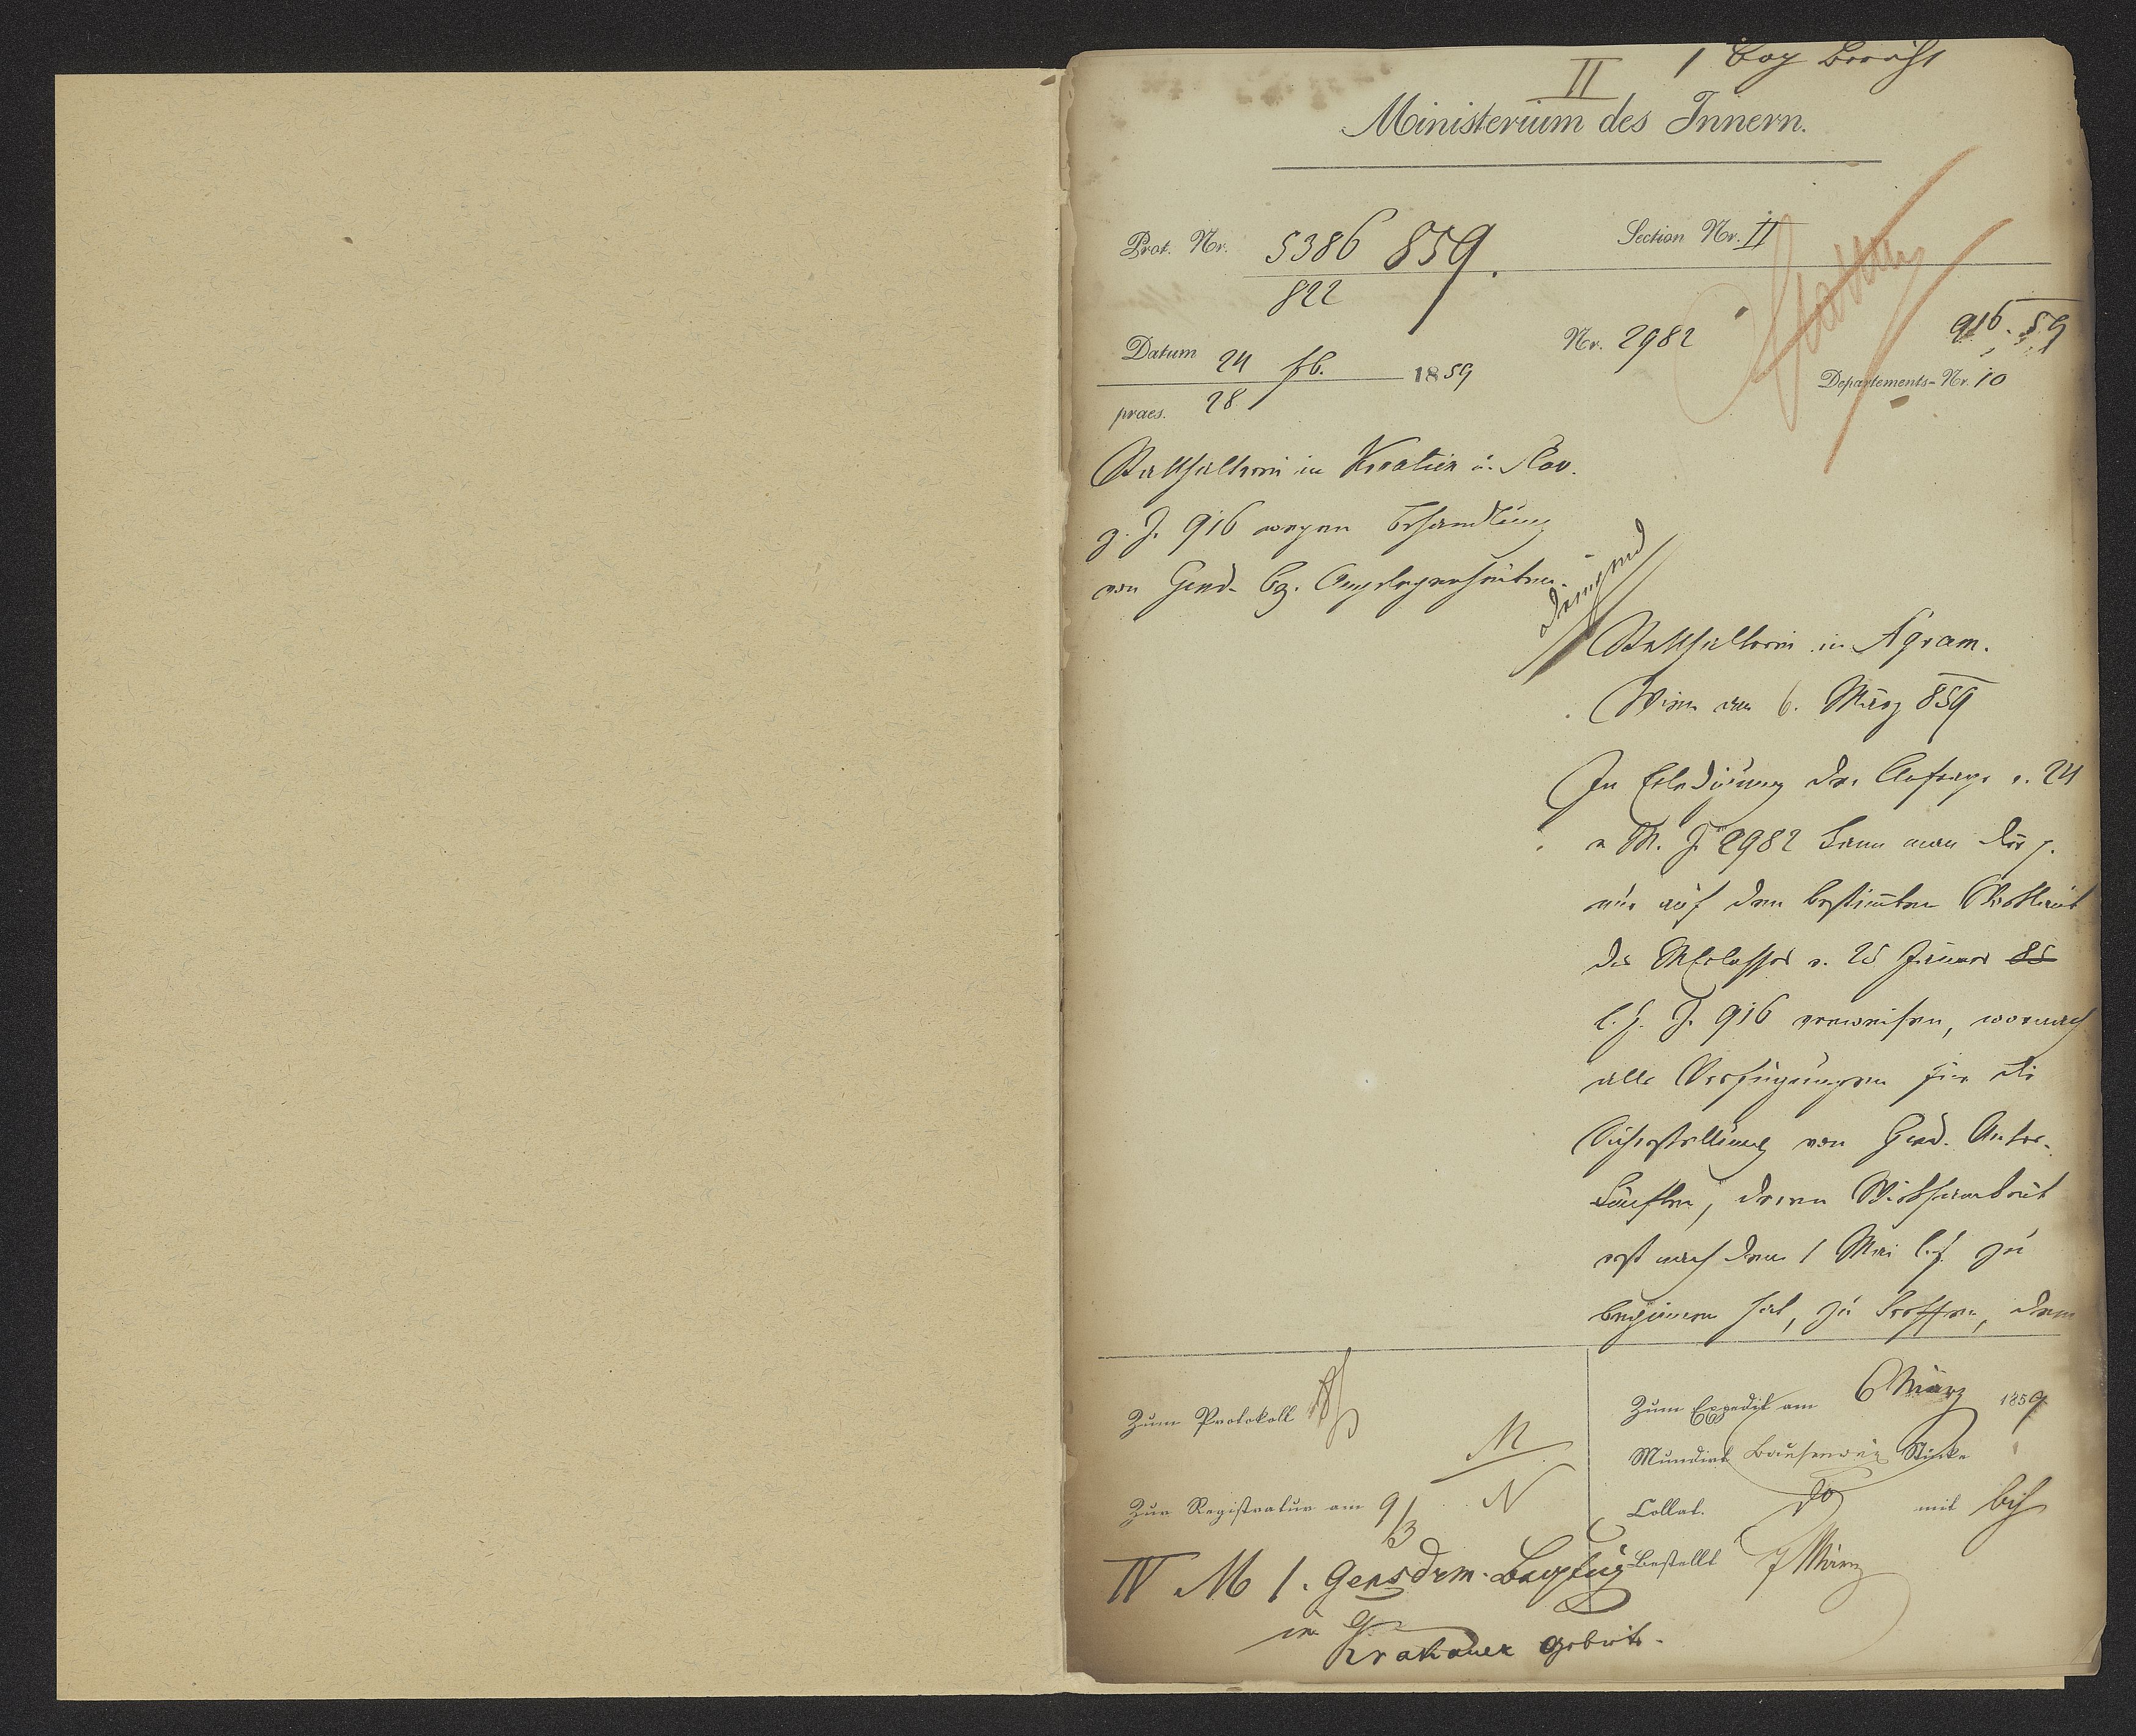 II
1 Bog Bericht
Ministerium des Innern.
Prot. Nr. 5386 859.
822
Section Nr. II
Datum 24 fb. 1859
praes. 28
Nr. 2982
916. 59
Departements-Nr. 10
Statthalterei in Kroatien u. Slav.
z. Z. 916 wegen Behandlung
von Gend. Bq. Angelegenheiten.
dringend
Statthalterei in Agram.
Wien den 6. März 859
In Erledigung der Anfrage v. 24
v M. Z. 2982 kann man die
nur auf den bestimten Wortlaut
des MErlasses v. 25 Jänner 85
l. J. Z. 916 verweisen, wornach
alle Verfügungen für die
Sicherstellung von Gend. Unter-
künften, deren Wirksamkeit
erst nach dem 1 Mai l. J. zu
beginnen hat, zu treffen, dem
Zum Protokoll
Zur Registratur am 9/3
M
N
Zum Expedit am 6 März 1859
Mundirt Stücke
Collat. do mit
Bestellt 7 März
IV M 1. Gensdrm. Bequtig
im
Krakauer Gebiete.